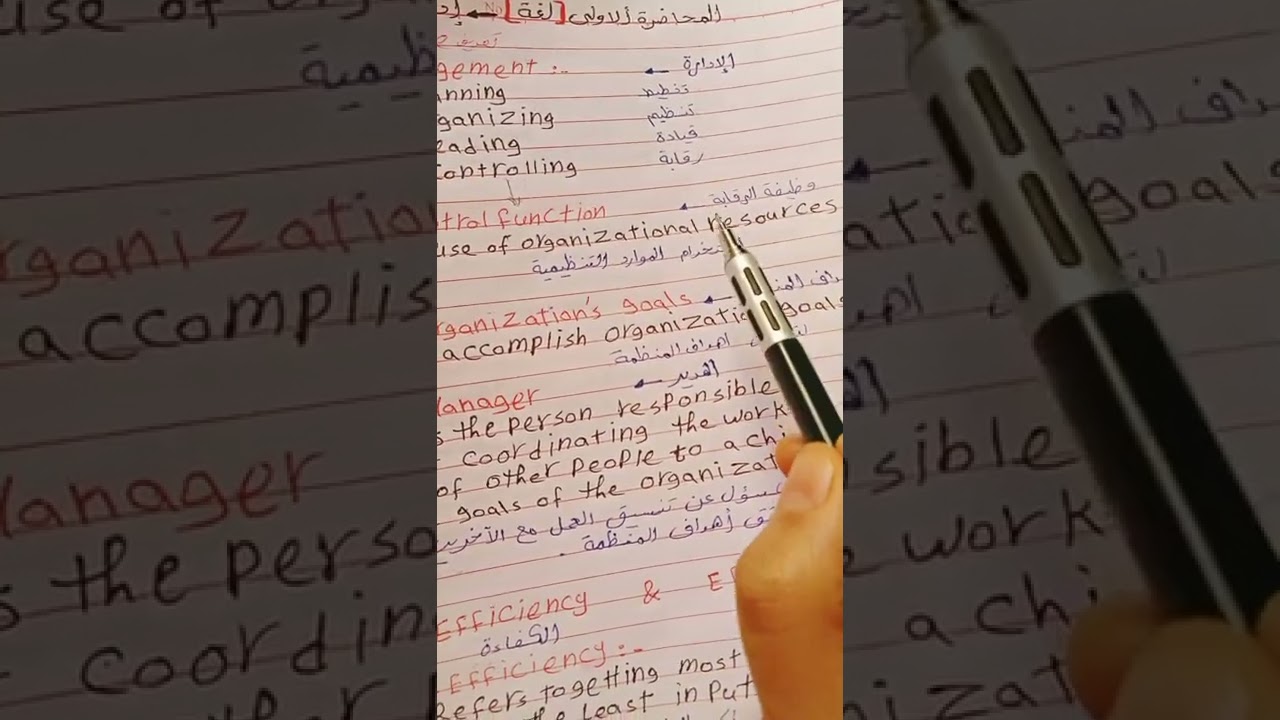 المحاضرة الاولى [لغة] ← إد
gement :- ← الإدارة
nning تخطيط
ganizing تنظيم
eading قيادة
controlling رقابة
trol function ← وظيفة الرقابة
use of organizational resources
الموارد التنظيمية
rganization's goals ←
accomplish organizatio goals
اهداف المنظمة
anager ← المدير
s the person responsible
coordinating the work
of other people to achi
goals of the organizat
سؤل عن تنسيق العمل مع الآخرين
ق أهداف المنظمة .
Efficiency & EF
الكفاءة
Efficiency :-
Refers to getting most
the least in put